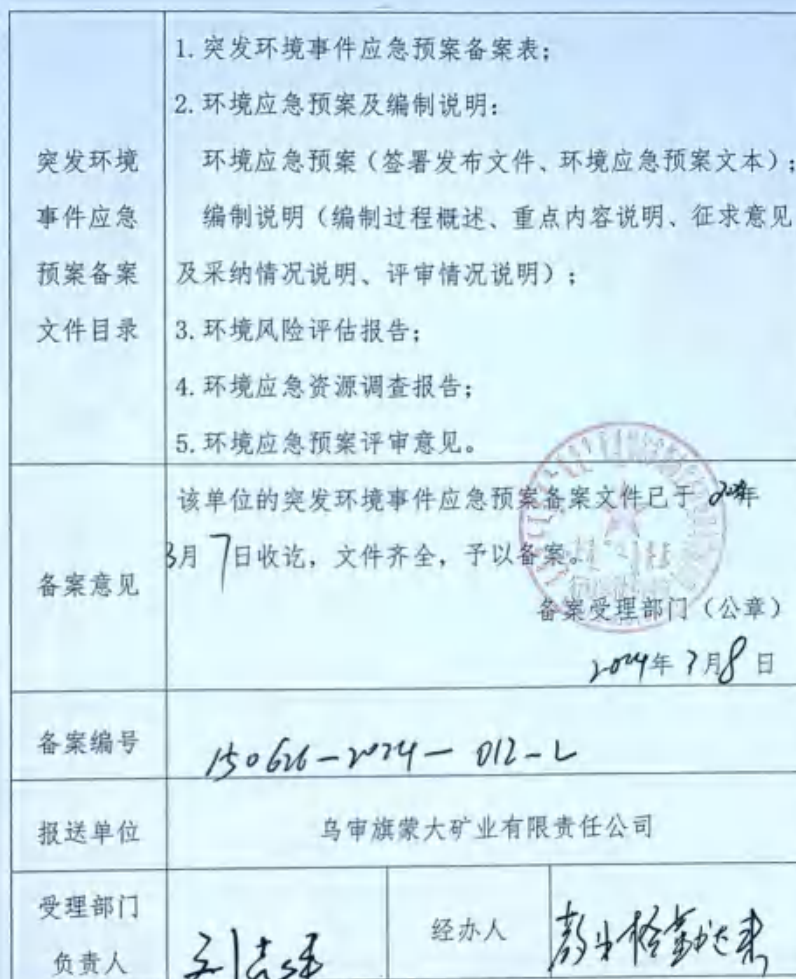 突发环境
事件应急
预案备案
文件目录
1.突发环境事件应急预案备案表；
2.环境应急预案及编制说明：
环境应急预案（签署发布文件、环境应急预案文本）；
编制说明（编制过程概述、重点内容说明、征求意见
及采纳情况说明、评审情况说明）；
3.环境风险评估报告；
4.环境应急资源调查报告；
5.环境应急预案评审意见。
备案意见
该单位的突发环境事件应急预案备案文件已于 2024年
3月7日收讫，文件齐全，予以备案。
备案受理部门（公章）
2024年3月8日
备案编号
150626-2024-012-L
报送单位
乌审旗蒙大矿业有限责任公司
受理部门
负责人
经办人